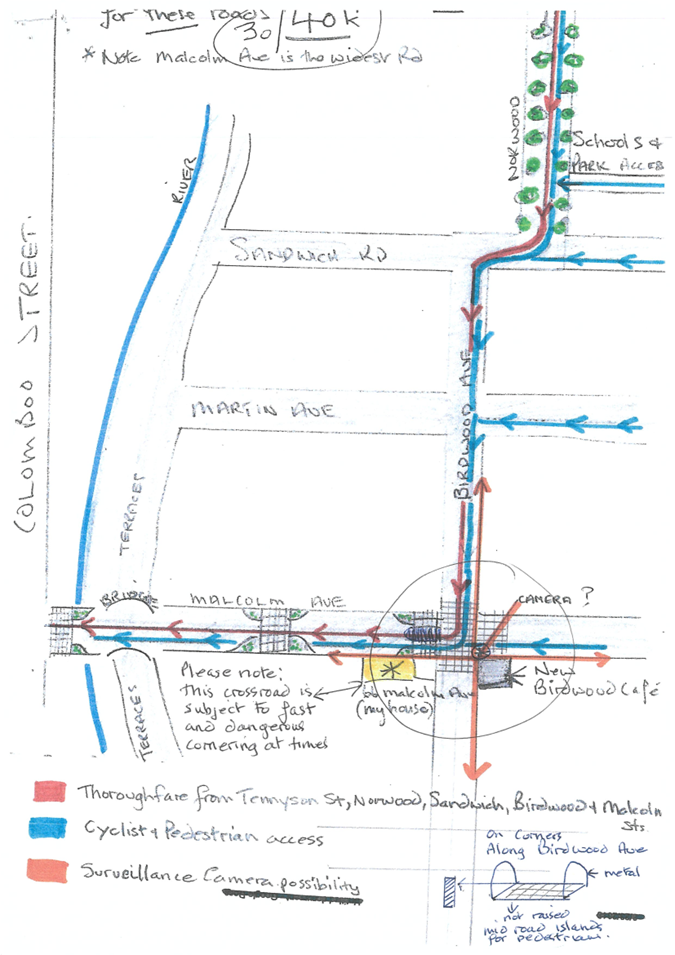 for these roads 30 / 40k
* Note Malcolm Ave is the widesr Rd
NORWOOD
Schools &
PARK ACCES
RIVER
SANDWICH RD
COLOMBOO STREET.
MARTIN AVE
BIRDWOOD AVE
TERRACES
BRIDGE
MALCOLM AVE
CAMERA ?
Please note:
this crossroad is
subject to fast
and dangerous
cornering at times
malcolm Ave
(my house)
New
Birdwood Café
TERRACES
Thoroughfare from Tennyson St, Norwood, Sandwich, Birdwood & Malcolm
Sts
Cyclist & Pedestrian access
Surveillance Camera possibility
On Corners
Along Birdwood Ave
metal
not raised
mid road islands
for pedestrian.